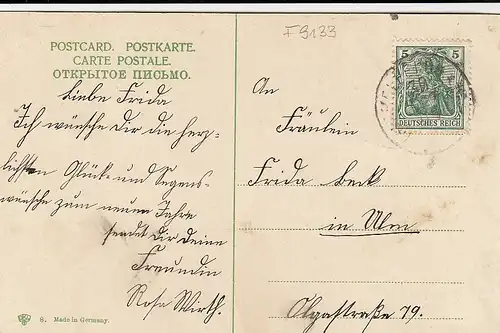 F9133
POSTCARD. POSTKARTE.
CARTE POSTALE.
ОТКРЫТОЕ ПИСЬМО.
5 5
DEUTSCHES REICH
Liebe Frida
Ich wünsche Dir die herz-
lichsten Glück- und Segens-
wünsche zum neuen Jahre
sendet Dir Deine
Freundin
Rosa Wirth.
An
Fräulein
Frida Beck
in Ulm
Olgastraße 79.
8. Made in Germany.